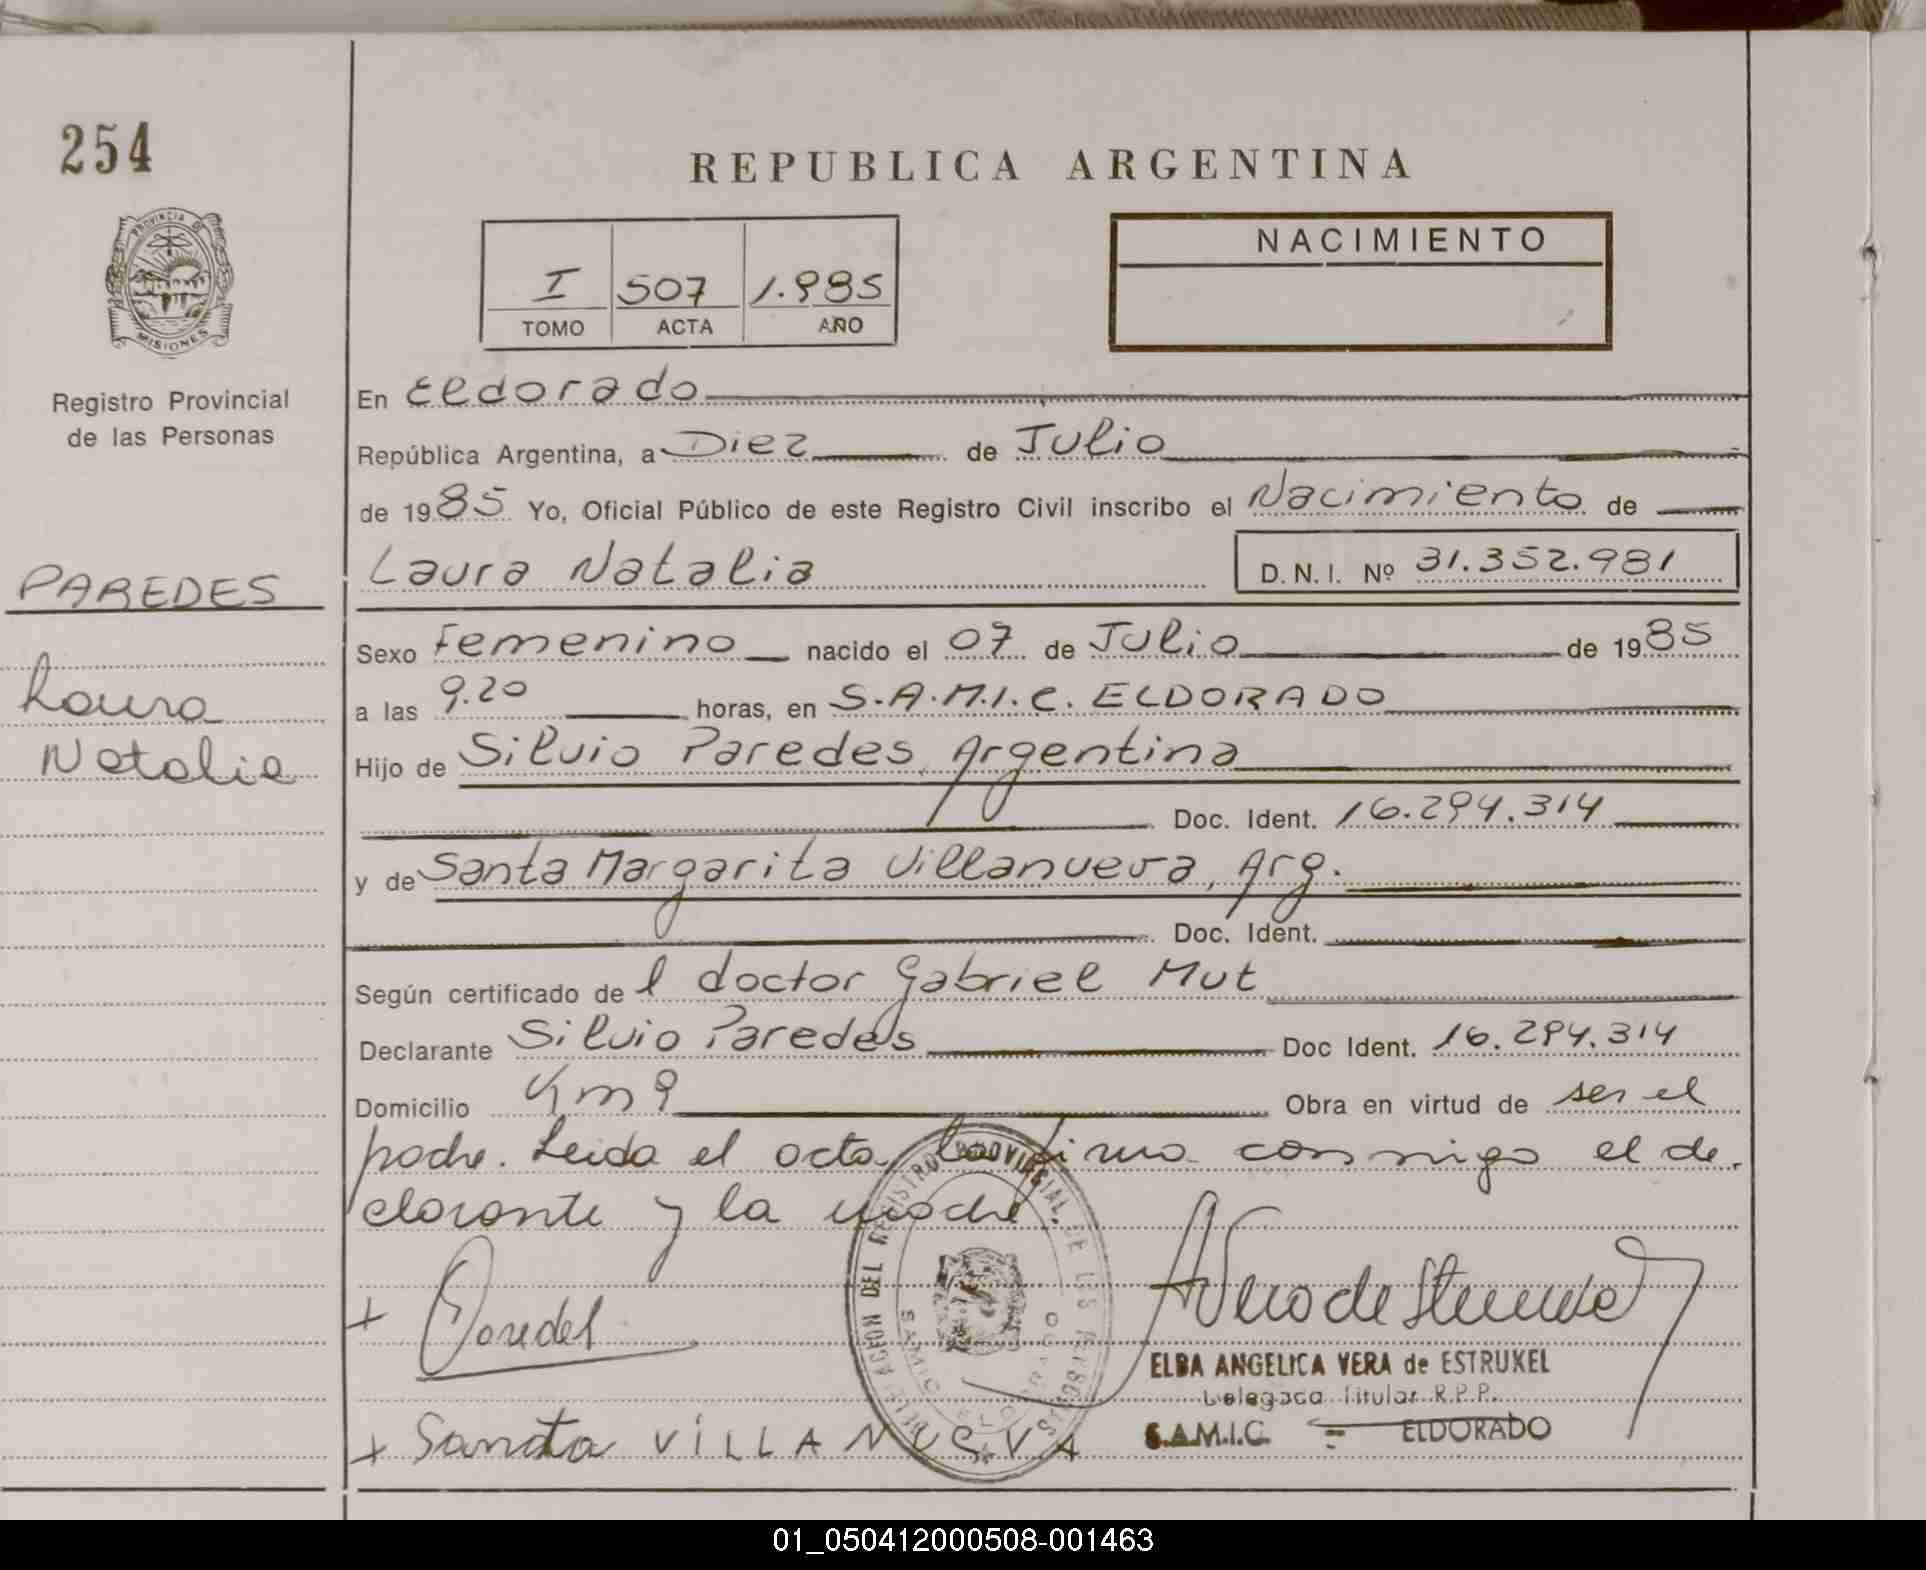 254
REPUBLICA ARGENTINA
PROVINCIA DE MISIONES
I 507 1.985
TOMO ACTA AÑO
NACIMIENTO
Registro Provincial
de las Personas
En Eldorado
República Argentina, a Diez de Julio
de 1985 Yo, Oficial Público de este Registro Civil inscribo el Nacimiento de
PAREDES
Laura Natalia D.N.I. Nº 31.352.981
Laura
Natalia
Sexo Femenino nacido el 07 de Julio de 1985
a las 9.20 horas, en S.A.M.I.C. ELDORADO
Hijo de Silvio Paredes, Argentina
Doc. Ident. 16.294.314
y de Santa Margarita Villanueva, Arg.
Doc. Ident.
Según certificado de l doctor Gabriel Mut
Declarante Silvio Paredes Doc Ident. 16.294.314
Domicilio Km 9 Obra en virtud de ser el
padre. Leida el acta, la firma conmigo el de-
clarante y la madre.
DELEGACION DEL REGISTRO PROVINCIAL DE LAS PERSONAS
SAMIC ELDORADO
+ Paredes
ELBA ANGELICA VERA de ESTRUKEL
Delegada Titular R.P.P.
S.A.M.I.C. = ELDORADO
+ Santa VILLANUEVA
01_050412000508-001463